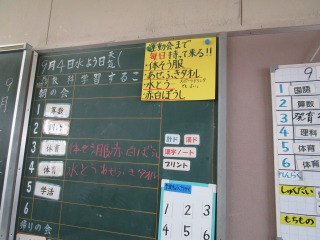 9月4日水よう日 天気(
教科 学習するこ
朝の会
1 算数
2
3 体育 体そう服 赤白ぼうし
4 体育 水とう あせふきタオル
5 学活
帰りの会
運動会まで
毎日持って来る!!
・体そう服
・あせふきタオル
・水とう
・赤白ぼうし
計ド 漢ド
漢字ノート
プリント
1 2 3
4 5 6
9
1 国語
2 算数
3
4 理科
5 体育
6 体育
しゅくだい
もちもの